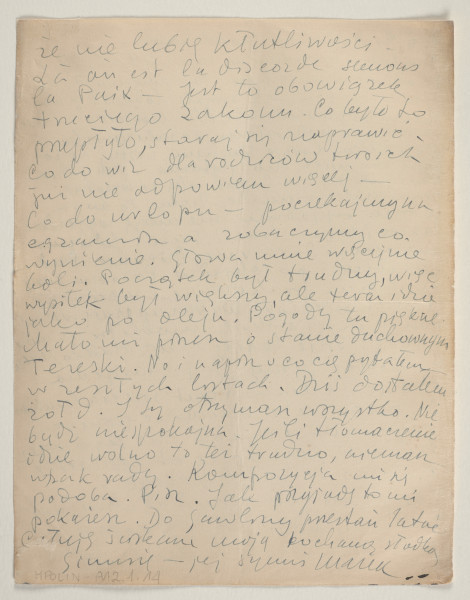 że nie lubię kłutliwości.
Là où est la discorde semons
la Paix — jest to obowiązek
trzeciego zakonu. Co było to
przeszło, staraj się naprawić.
Co do wiz dla rodziców twoich
już nie odpowiem więcej —
Co do urlopu — poczekajmy na
egzamin a zobaczymy co
wyniknie. Głowa mnie wściekle
boli. Początek był trudny, więc
wysiłek był większy, ale teraz idzie
jako po oleju. Pogody tu piękne.
Mało mi piszesz o stanie duchownym
Tereski. No i napisz o co cię pytałem
w zeszłych listach. Dziś dostałem
żołd. I Ty otrzymasz wszystko. Nie
bądź niespokojna. Jeśli tłomaczenie
idzie wolno to też trudno, niema
wszak rady. Kompozycja mi się
podoba. Pisz. Jak przyjadę to mi
pokażesz. Do przestań latać
Całuję ściskam moją kochaną słodką
— jej
MPOLIN A12.1.14